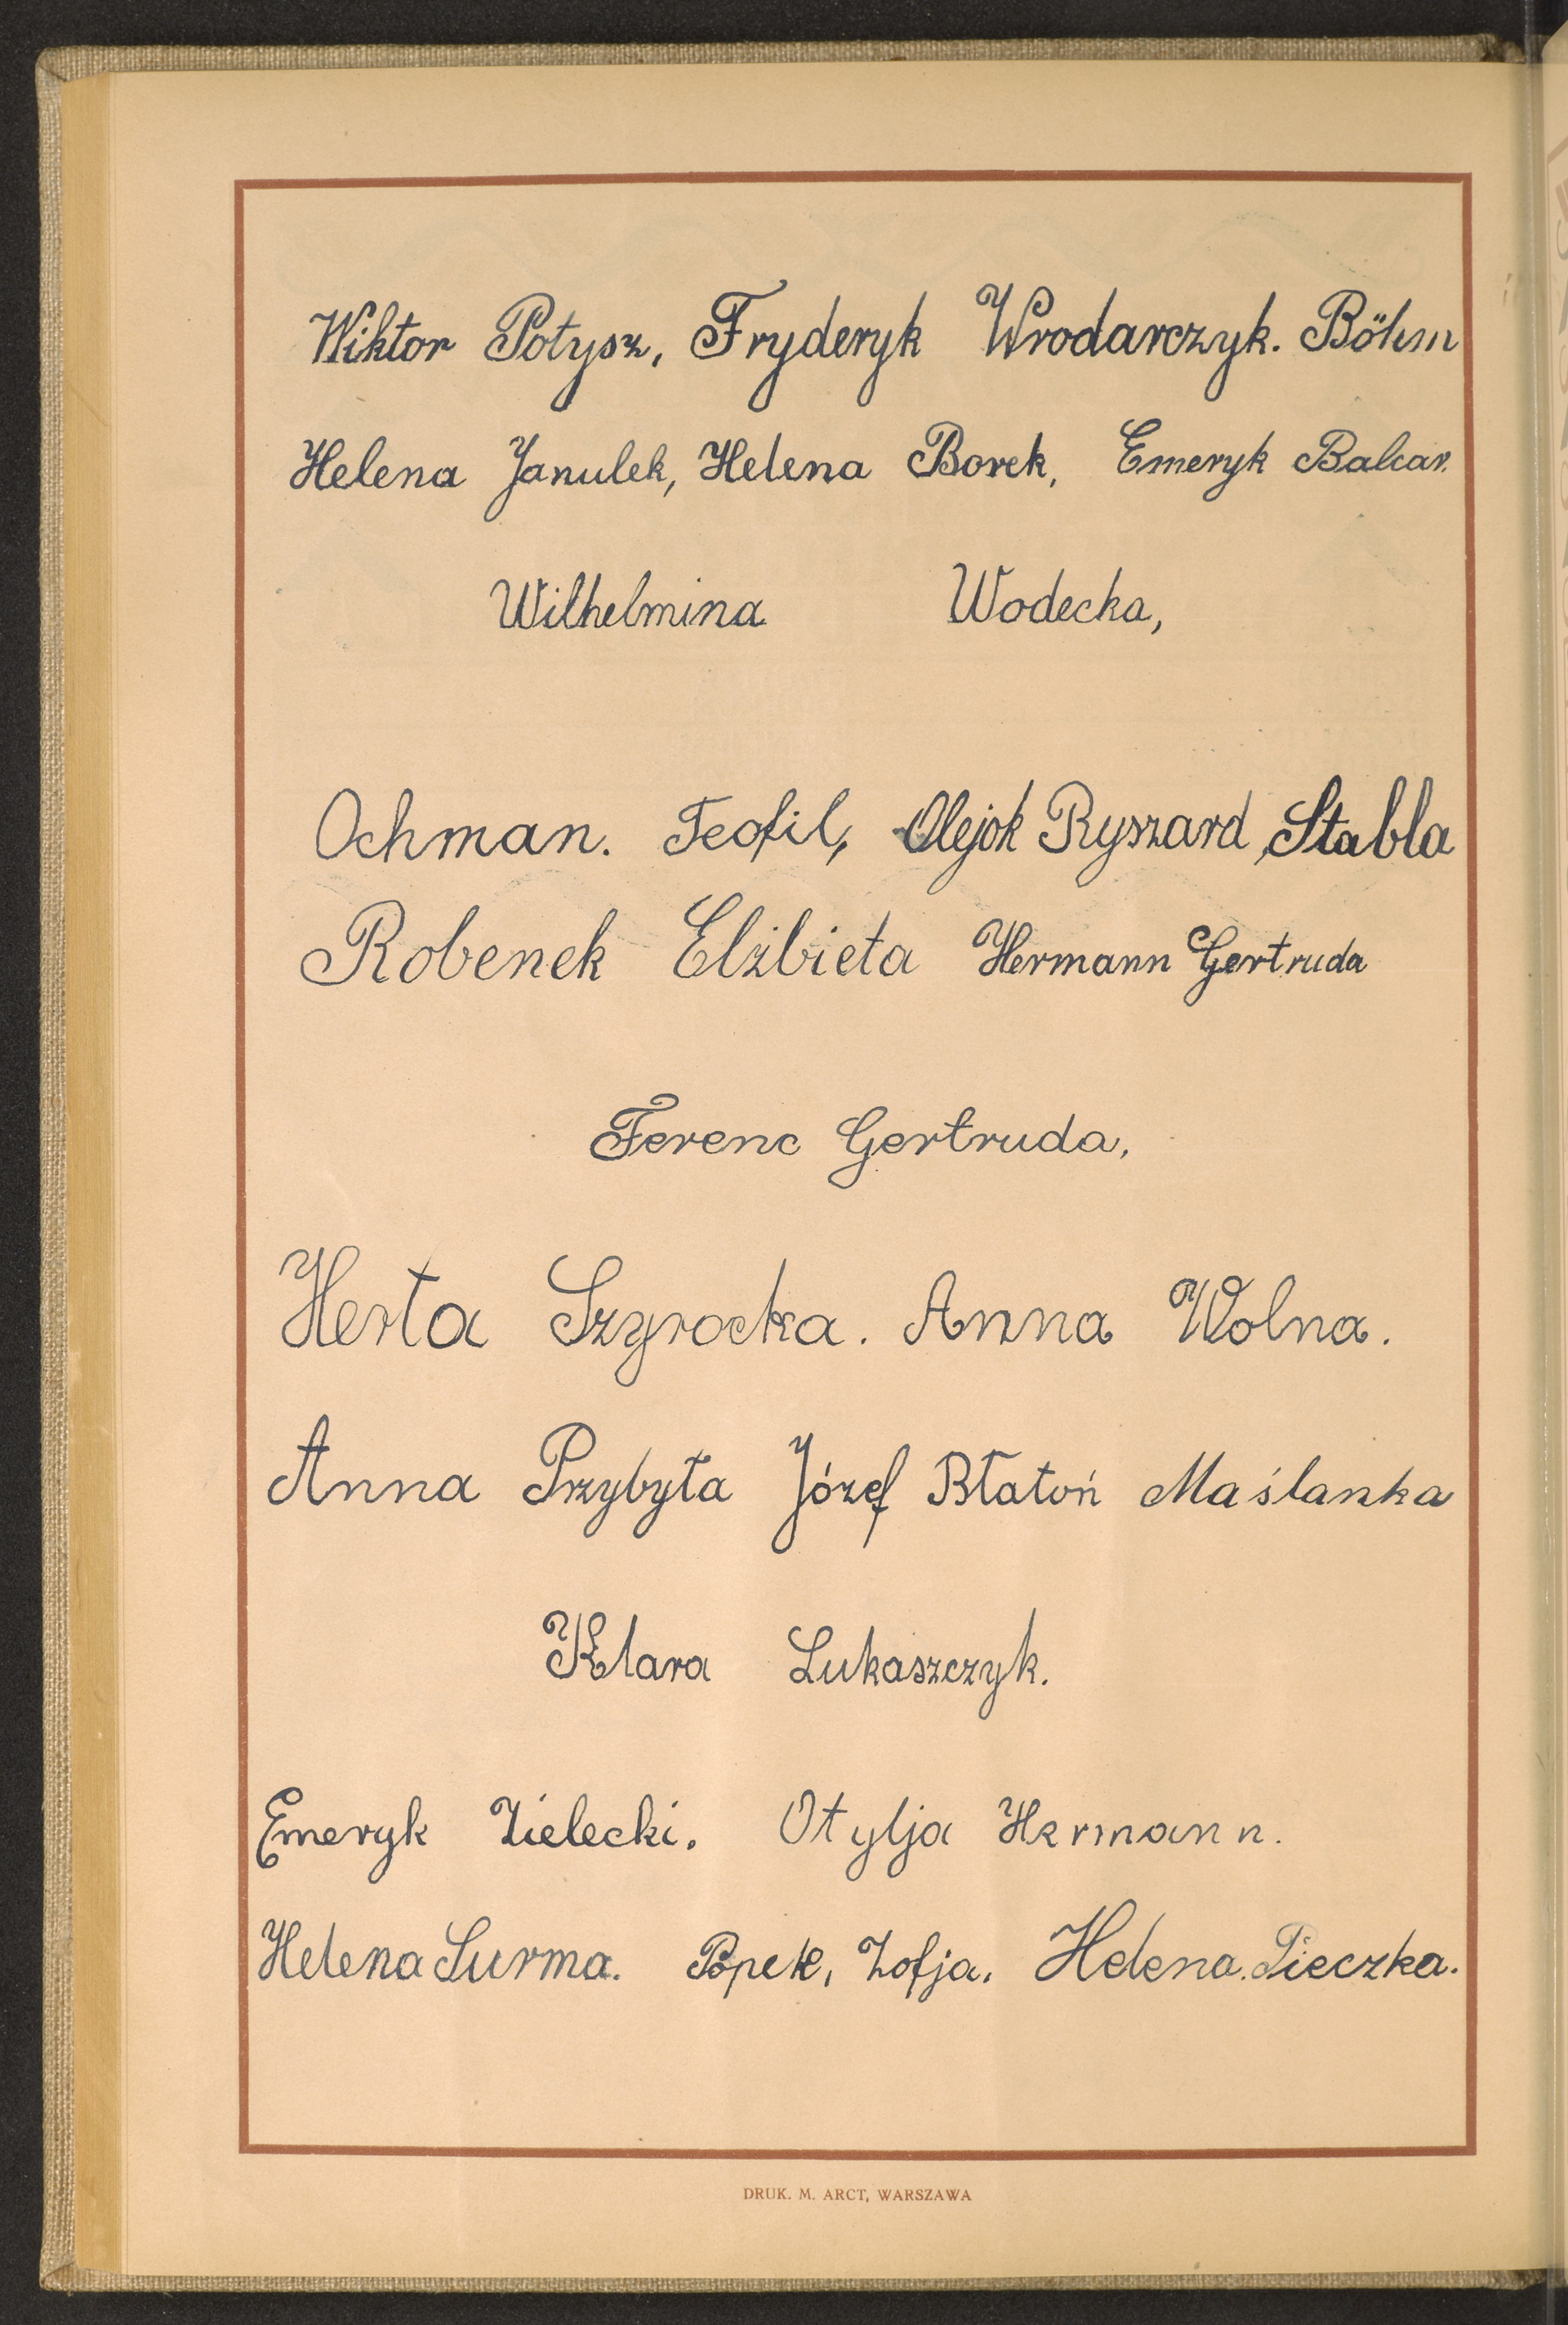 Wiktor Potysz, Fryderyk Wrodarczyk. Böhm
Helena Janulek, Helena Borek, Emeryk Balcar.
Wilhelmina Wodecka,
Ochman. Teofil, Olejok Ryszard, Stabla
Robenek Elżbieta Hermann Gertruda
Ferenc Gertruda,
Herta Szyrocka. Anna Wolna.
Anna Przybyła Józef Błatoń Maślanka
Klara Lukaszczyk.
Emeryk Zielecki. Otylja Hermann.
Helena Surma. Popek, Zofja. Helena. Pieczka.
DRUK. M. ARCT, WARSZAWA